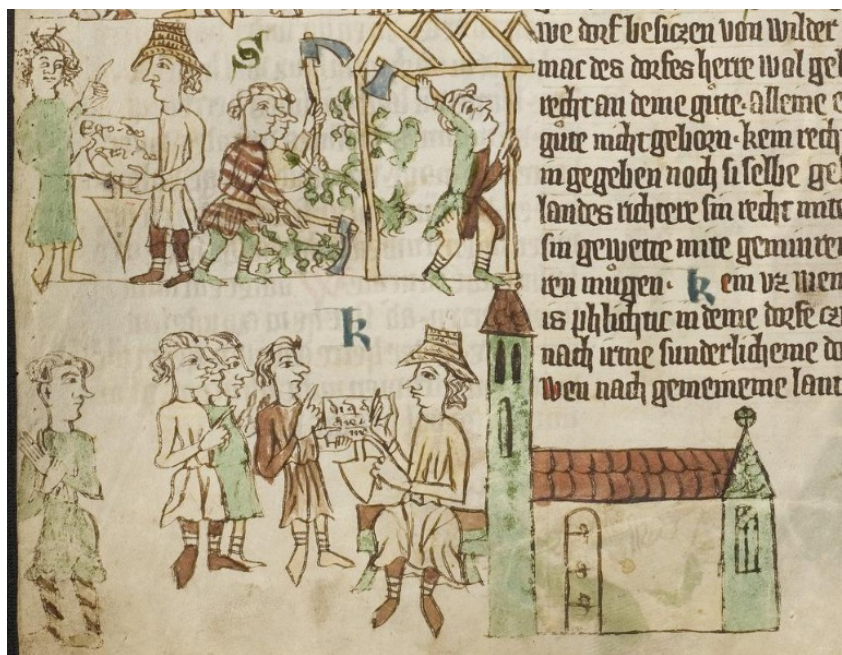 S
Ego de
we dorf besiczen von wilder
mac des dorfes herre wol gel
recht an deme gůte. alleine e
gůte nicht geborn. kein rech
in gegeben noch si selbe ge
landes richtere sin recht mite
sin gewette mite geminren
ren můgen. kein vz wen
is phlichtic in deme dorfe cz
nach irme sunderlicheme do
wen nach gemeineme lant
k